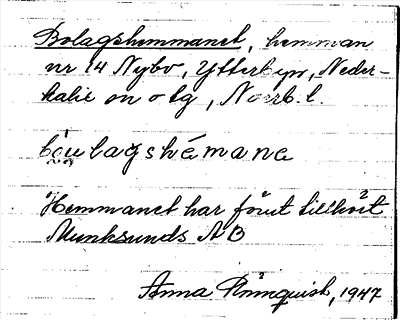 Bolagshemmanet, hemman
nr 14 Nybo, Ytterbyn, Neder-
kalix sn o tg, Norrb. l.
bòulagshémane
Hemmanet har förut tillhört
Munksunds AB
Anna Rönnquist, 1947